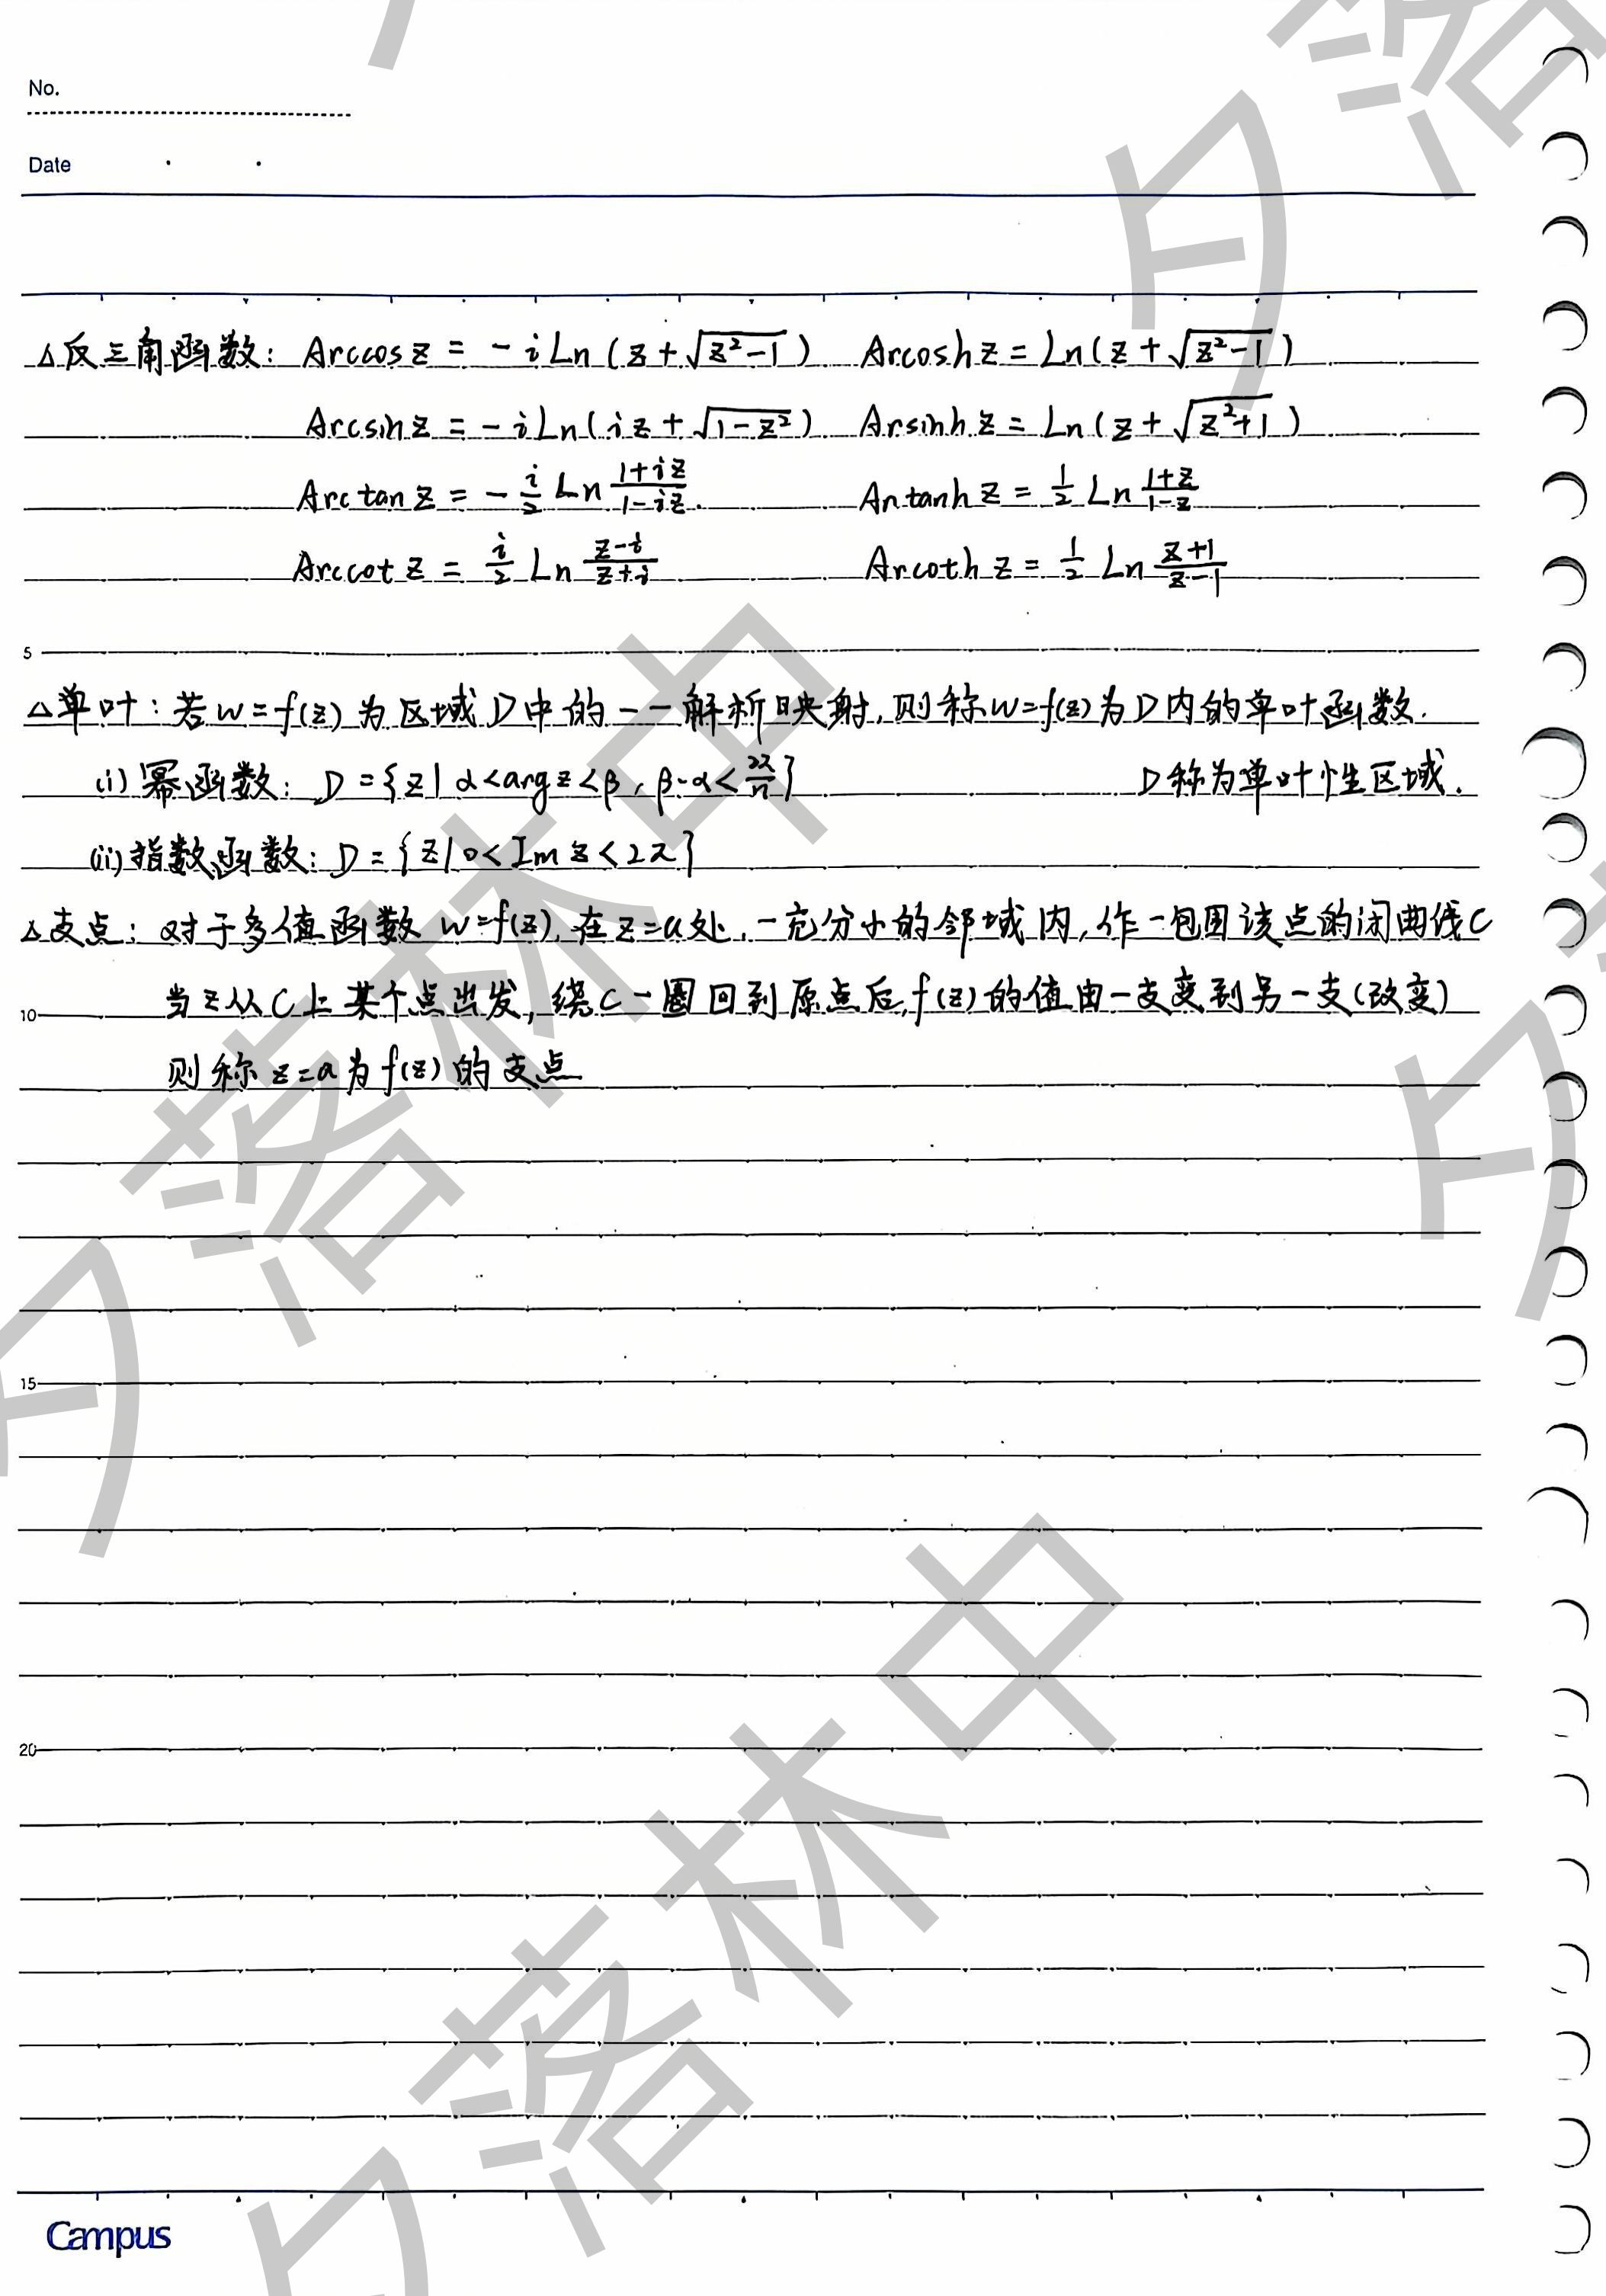 No.
Date
△反三角函数: Arccos z = -i Ln(z+√(z²-1)) Arcosh z = Ln(z+√(z²-1))
Arcsin z = -i Ln(iz+√(1-z²)) Arsinh z = Ln(z+√(z²+1))
Arctan z = -i/2 Ln (1+iz)/(1-iz). Artanh z = 1/2 Ln (1+z)/(1-z)
Arccot z = i/2 Ln (z-i)/(z+i) Arcoth z = 1/2 Ln (z+1)/(z-1)
5
△单叶: 若w=f(z)为区域D中的一一解析映射,则称w=f(z)为D内的单叶函数.
(i)幂函数: D={z|α<arg z<β, β-α<2π/n} D称为单叶性区域.
(ii)指数函数: D={z|0<Im z<2π}
△支点: 对于多值函数w=f(z),在z=a处,一充分小的邻域内,作一包围该点的闭曲线C
10 当z从C上某个点出发,绕C一圈回到原点后,f(z)的值由一支变到另一支(改变)
则称z=a为f(z)的支点
15
20
Campus
夕落林中
夕落林中
夕落
夕